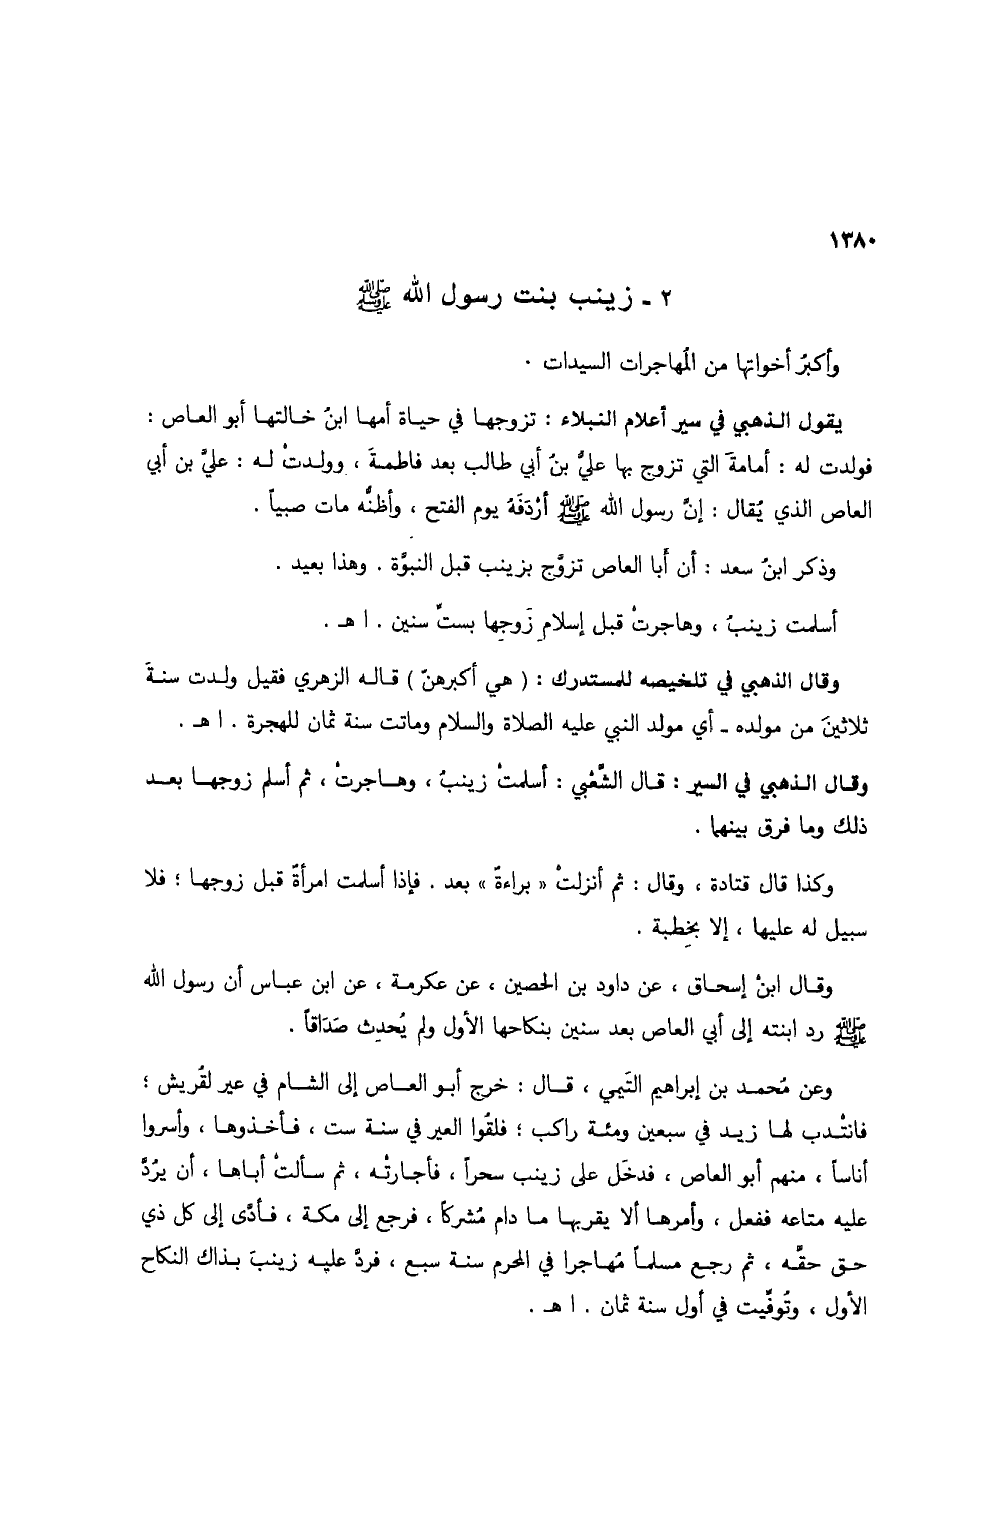 ١٣٨٠
٢ ـ زينب بنت رسول الله ﷺ
وأكبرُ أخواتها من المُهاجرات السيدات .
يقول الذهبي في سير أعلام النبلاء : تزوجها في حياة أمها ابنُ خالتها أبو العاص :
فولدت له : أمامةَ التي تزوج بها عليُّ بنُ أبي طالب بعد فاطمةَ ، وولدتْ له : عليَّ بن أبي
العاص الذي يُقال : إنَّ رسول الله ﷺ أرْدَفَهُ يوم الفتح ، وأظنُّه مات صبياً .
وذكر ابنُ سعد : أن أَبا العاص تزوَّج بزينب قبل النبوَّة . وهذا بعيد .
أسلمت زينبُ ، وهاجرتْ قبل إسلامِ زَوجِها بستِّ سنين . ا هـ .
وقال الذهبي في تلخيصه للمستدرك : ( هي أكبرهنّ ) قاله الزهري فقيل ولدت سنةَ
ثلاثينَ من مولده ـ أي مولد النبي عليه الصلاة والسلام وماتت سنة ثمان للهجرة . ا هـ .
وقال الذهبي في السير : قال الشَّعْبي : أسلمتْ زينبُ ، وهاجرتْ ، ثم أسلم زوجها بعد
ذلك وما فرق بينهما .
وكذا قال قتادة ، وقال : ثم أنزلتْ « براءةٌ » بعد . فإذا أسلمت امرأةٌ قبل زوجها ؛ فلا
سبيل له عليها ، إلا بخِطبة .
وقال ابنُ إسحاق ، عن داود بن الحصين ، عن عكرمة ، عن ابن عباس أن رسول الله
ﷺ رد ابنته إلى أبي العاص بعد سنين بنكاحها الأول ولم يُحدِث صَدَاقاً .
وعن مُحمد بن إبراهيم التَيمي ، قال : خرج أبو العاص إلى الشام في عير لقُريش ؛
فانتُدب لها زيد في سبعين ومئة راكب ؛ فلقُوا العير في سنة ست ، فأخذوها ، وأسروا
أناساً ، منهم أبو العاص ، فدخَل على زينب سحراً ، فأجارتْه ، ثم سألتْ أباها ، أن يرُدَّ
عليه متاعه ففعل ، وأمرها ألا يقربها ما دام مُشركاً ، فرجع إلى مكة ، فأدَّى إلى كل ذي
حق حقَّه ، ثم رجع مسلماً مُهاجرا في المحرم سنة سبع ، فردَّ عليه زينبَ بذاك النكاح
الأول ، وتُوفِّيت في أول سنة ثمان . ا هـ .